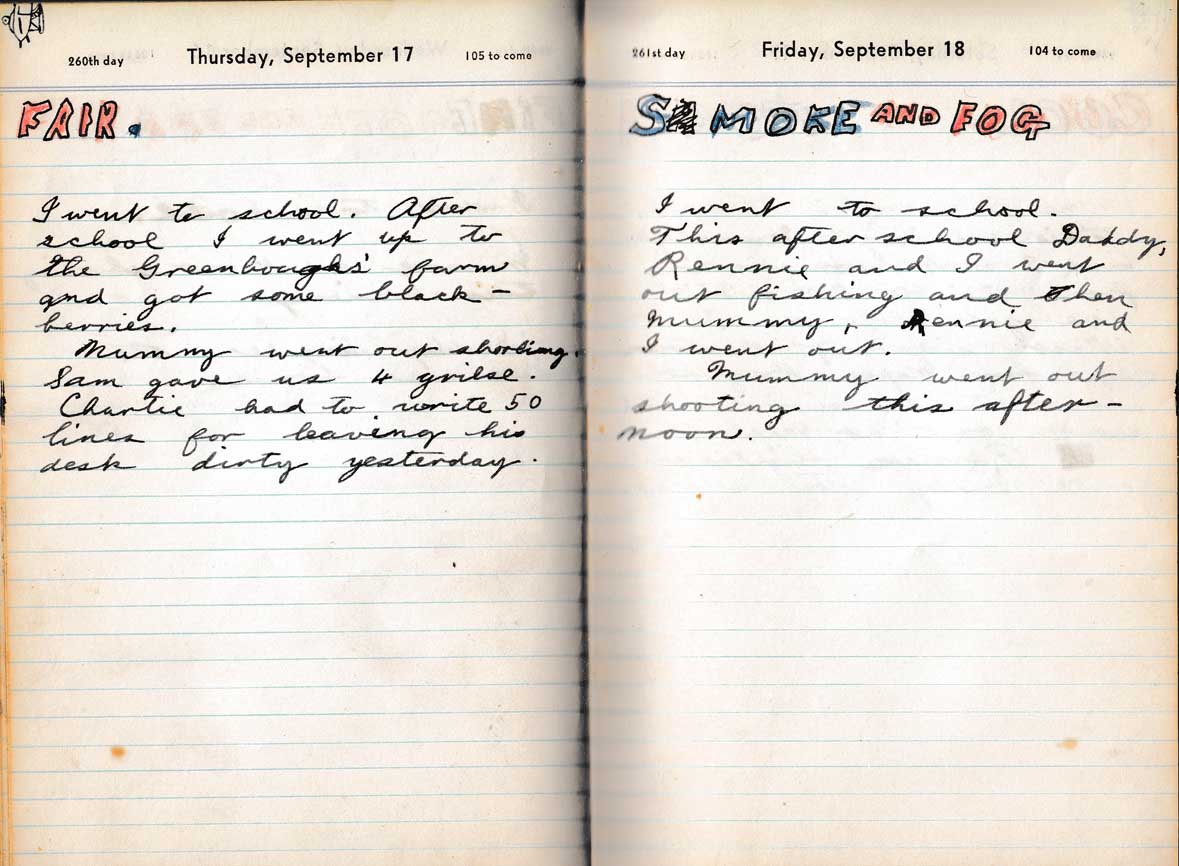 260th day Thursday, September 17 105 to come
FAIR.
I went to school. After
school I went up to
the Greenboughs' farm
and got some black-
berries.
Mummy went out shooting.
Sam gave us 4 grilse.
Charlie had to write 50
lines for leaving his
desk dirty yesterday.
261st day Friday, September 18 104 to come
SMOKE AND FOG
I went to school.
This after school Daddy,
Rennie and I went
out fishing and then
Mummy, Rennie and
I went out.
Mummy went out
shooting this after-
noon.